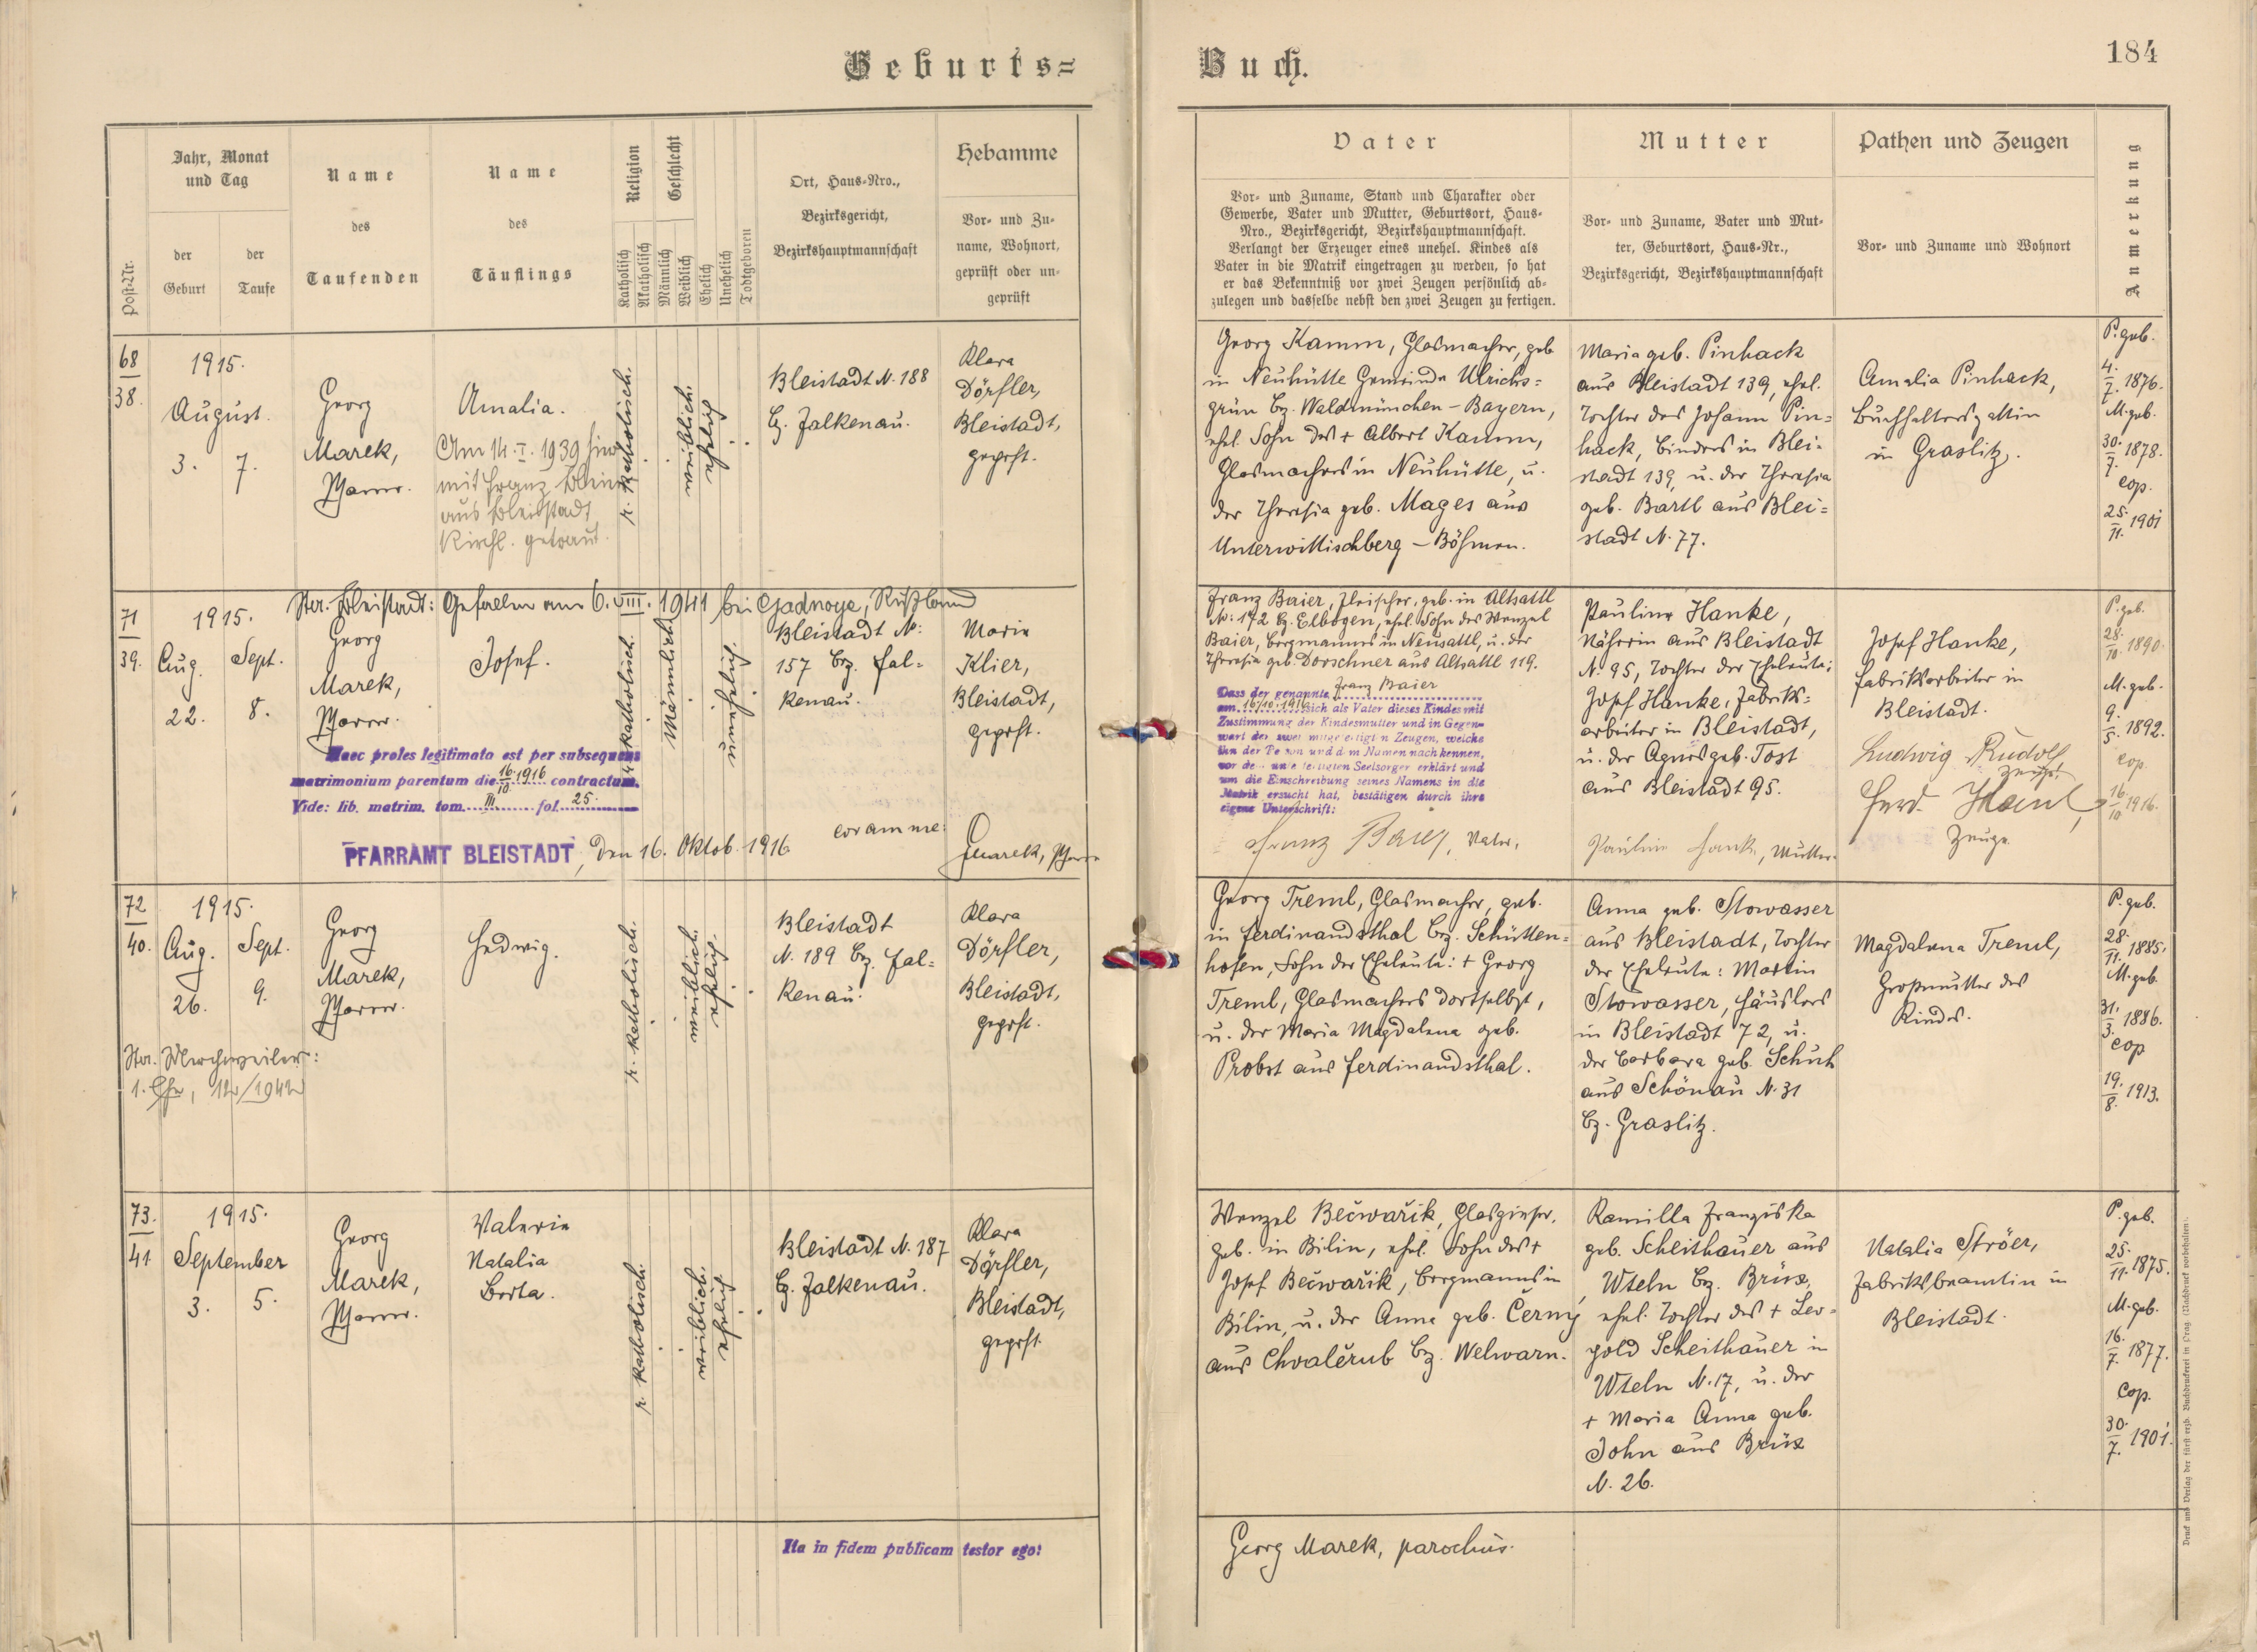 Geburts=
Buch.
184
Post-Nr.
Jahr, Monat
und Tag
der
Geburt
der
Taufe
Name
des
Taufenden
Name
des
Täuflings
Religion
Katholisch
Akatholisch
Geschlecht
Männlich
Weiblich
Ehelich
Unehelich
Todtgeboren
Ort, Haus-Nro.,
Bezirksgericht,
Bezirkshauptmannschaft
Hebamme
Vor- und Zu-
name, Wohnort,
geprüft oder un-
geprüft
Vater
Vor- und Zuname, Stand und Charakter oder
Gewerbe, Vater und Mutter, Geburtsort, Haus-
Nro., Bezirksgericht, Bezirkshauptmannschaft.
Verlangt der Erzeuger eines unehel. Kindes als
Vater in die Matrik eingetragen zu werden, so hat
er das Bekenntniß vor zwei Zeugen persönlich ab-
zulegen und dasselbe nebst den zwei Zeugen zu fertigen.
Mutter
Vor- und Zuname, Vater und Mut-
ter, Geburtsort, Haus-Nr.,
Bezirksgericht, Bezirkshauptmannschaft
Pathen und Zeugen
Vor- und Zuname und Wohnort
Anmerkung
68
38.
1915.
August.
3. 7.
Georg
Marek,
Pfarrer.
Amalia.
Am 14. I. 1939 hier
mit Franz
aus Bleistadt
kirchl. getraut.
r. katholisch.
weiblich.
ehelich
Bleistadt N. 188
Bz. Falkenau.
Klara
Dörfler,
Bleistadt,
geprft.
Georg Kamm, Glasmacher, geb.
in Neuhütte Gemeinde Ulrichs=
grün Bz. Waldmünchen - Bayern,
ehel. Sohn des + Albert Kamm,
Glasmachers in Neuhütte, u.
der Theresia geb. Mages aus
Unterwittischberg - Böhmen.
Maria geb. Pinhack
aus Bleistadt 139, ehel.
Tochter des Johann Pin=
hack, Binders in Blei=
stadt 139, u. der Theresia
geb. Bartl aus Blei=
stadt N. 77.
Amalia Pinhack,
Buchhaltersgattin
in Graslitz.
P. geb.
4.
7. 1876.
M. geb.
30.
7. 1878.
cop.
25.
11. 1901
71
39.
1915.
Aug. Sept.
22. 8.
Bleistadt: Gefallen am 6. VIII. 1941 bei Gadnoye, Rußland
Georg
Marek,
Pfarrer.
Josef.
r. katholisch.
Männlich.
unehelich.
Bleistadt N:
157 Bz. Fal=
kenau.
Marie
Klier,
Bleistadt,
geprft.
Haec proles legitimata est per subsequens
matrimonium parentum die 16.10 1916 contractum.
Vide: lib. matrim. tom. III. fol. 25.
PFARRAMT BLEISTADT, den 16. Oktob. 1916
coram me:
GMarek, Pfarrer
Franz Baier, Fleischer, geb. in Altsattl
N: 172 Bz. Elbogen, ehel. Sohn des Wenzel
Baier, Bergmanns in Neusattl, u. der
Theresia geb. Dorschner aus Altsattl 119.
Dass der genannte Franz Baier
am 16/10. 1916 sich als Vater dieses Kindes mit
Zustimmung der Kindesmutter und in Gegen-
wart der zwei mitgefertigten Zeugen, welche
ihn der Person und dem Namen nach kennen,
vor dem unterfertigten Seelsorger erklärt und
um die Einschreibung seines Namens in die
Matrik ersucht hat, bestätigen durch ihre
eigene Unterschrift:
Franz Baier, Vater,
Pauline Hanke,
Näherin aus Bleistadt
N. 95, Tochter der Eheleute:
Josef Hanke, Fabriks=
arbeiter in Bleistadt,
u. der Agnes geb. Tost
aus Bleistadt 95.
Pauline Hanke, Mutter.
Josef Hanke,
Fabriksarbeiter in
Bleistadt.
Ludwig Rudolf
Zeuge
Ferd. Hanl,
Zeuge
P. geb.
28.
10. 1890.
M. geb.
9.
5. 1892.
cop.
16
10 1916.
72
40.
1915.
Aug. Sept.
26. 9.
Georg
Marek,
Pfarrer.
Hedwig.
Merchweiler:
1. Ehe, 12/1942
r. katholisch.
weiblich.
ehelich.
Bleistadt
N. 189 Bz. Fal=
kenau.
Klara
Dörfler,
Bleistadt,
geprft.
Georg Treml, Glasmacher, geb.
in Ferdinandsthal Bz. Schütten=
hofen, Sohn der Eheleute: + Georg
Treml, Glasmachers dortselbst,
u. der Maria Magdalena geb.
Probst aus Ferdinandsthal.
Anna geb. Stowasser
aus Bleistadt, Tochter
der Eheleute: Martin
Stowasser, Häuslers
in Bleistadt 72, u.
der Barbara geb. Schuh
aus Schönau N. 31
Bz. Graslitz.
Magdalena Treml,
Großmutter des
Kindes.
P. geb.
28.
11. 1885.
M. geb.
31.
3. 1886.
cop
19.
8. 1913.
73.
41
1915.
September
3. 5.
Georg
Marek,
Pfarrer.
Valerie
Natalia
Berta.
r. katholisch.
weiblich.
ehelich
Bleistadt N. 187
Bz. Falkenau.
Klara
Dörfler,
Bleistadt,
geprft.
Wenzel Bečwařik, Glasgießer,
geb. in Bilin, ehel. Sohn des +
Josef Bečwařik, Bergmanns in
Bilin, u. der Anna geb. Černý
aus Chvalěrub Bz. Welwarn.
Kamilla Franziska
geb. Scheithauer aus
Wteln Bz. Brüx,
ehel. Tochter des + Leo=
pold Scheithauer in
Wteln N. 17, u. der
+ Maria Anna geb.
John aus Brüx
N. 26.
Natalia Ströer,
Fabriksbeamtin in
Bleistadt.
P. geb.
25.
11. 1875.
M. geb.
16.
7. 1877.
Cop.
30.
7. 1901.
Ita in fidem publicam testor ego:
Georg Marek, parochus.
Druck und Verlag der fürst-erzb. Buchdruckerei in Prag. (Nachdruck vorbehalten).